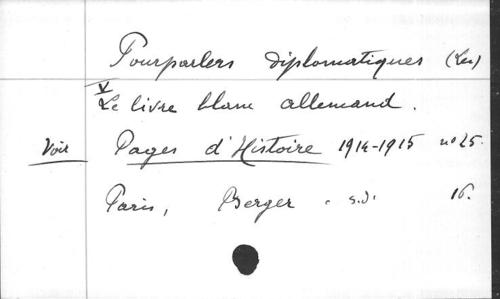 Pourparlers diplomatiques (Les)
V
Le livre blanc allemand.
Voir Pages d'Histoire 1914-1915 no 25.
Paris, Berger. s.d. 16.